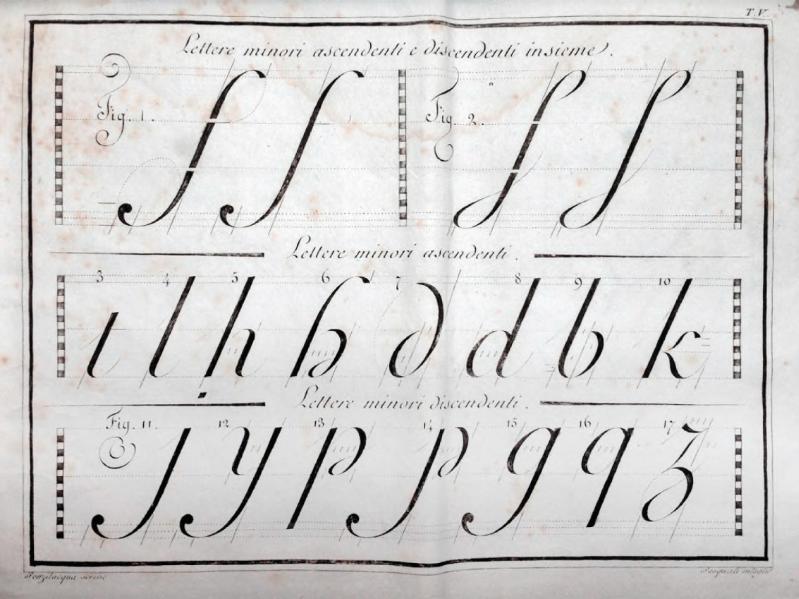 T. V.
Lettere minori ascendenti e discendenti insieme.
Fig. 1. ſ ſ Fig. 2. ſ ſ
Lettere minori ascendenti.
3 4 5 6 7 8 9 10
t l h h d d b k
Lettere minori discendenti.
Fig. 11. 12 13 14 15 16 17
j y p p g q z